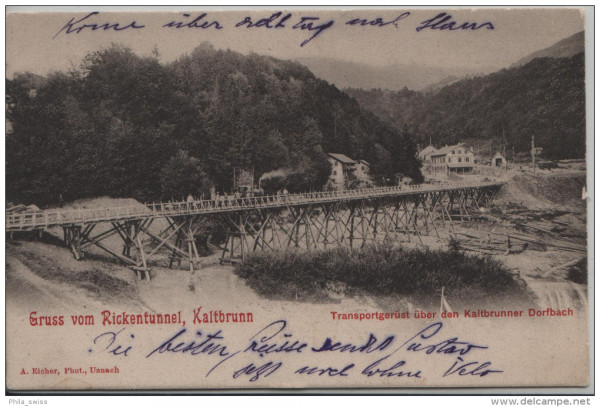 Komme über acht tag nach Haus
Gruss vom Rickentunnel, Kaltbrunn
Transportgerüst über den Kaltbrunner Dorfbach
Die besten Grüsse sendet Gustav
jetzt noch ohne Velo
A. Eicher, Phot., Uznach
Phila_swiss
www.delcampe.net